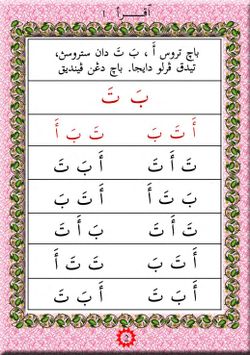 اقرأ ١
باچ تروس أَ ، بَ تَ دان ستروسڽ،
تيدق ڤرلو دايجا. باچ دڠن ڤينديق
بَ تَ
أَ تَ بَ تَ بَ أَ
تَ أَ تَ أَ بَ تَ
تَ بَ أَ أَ تَ بَ
تَ أَ تَ بَ أَ تَ
أَ تَ بَ تَ تَ أَ
أَ بَ تَ أَ بَ تَ
2